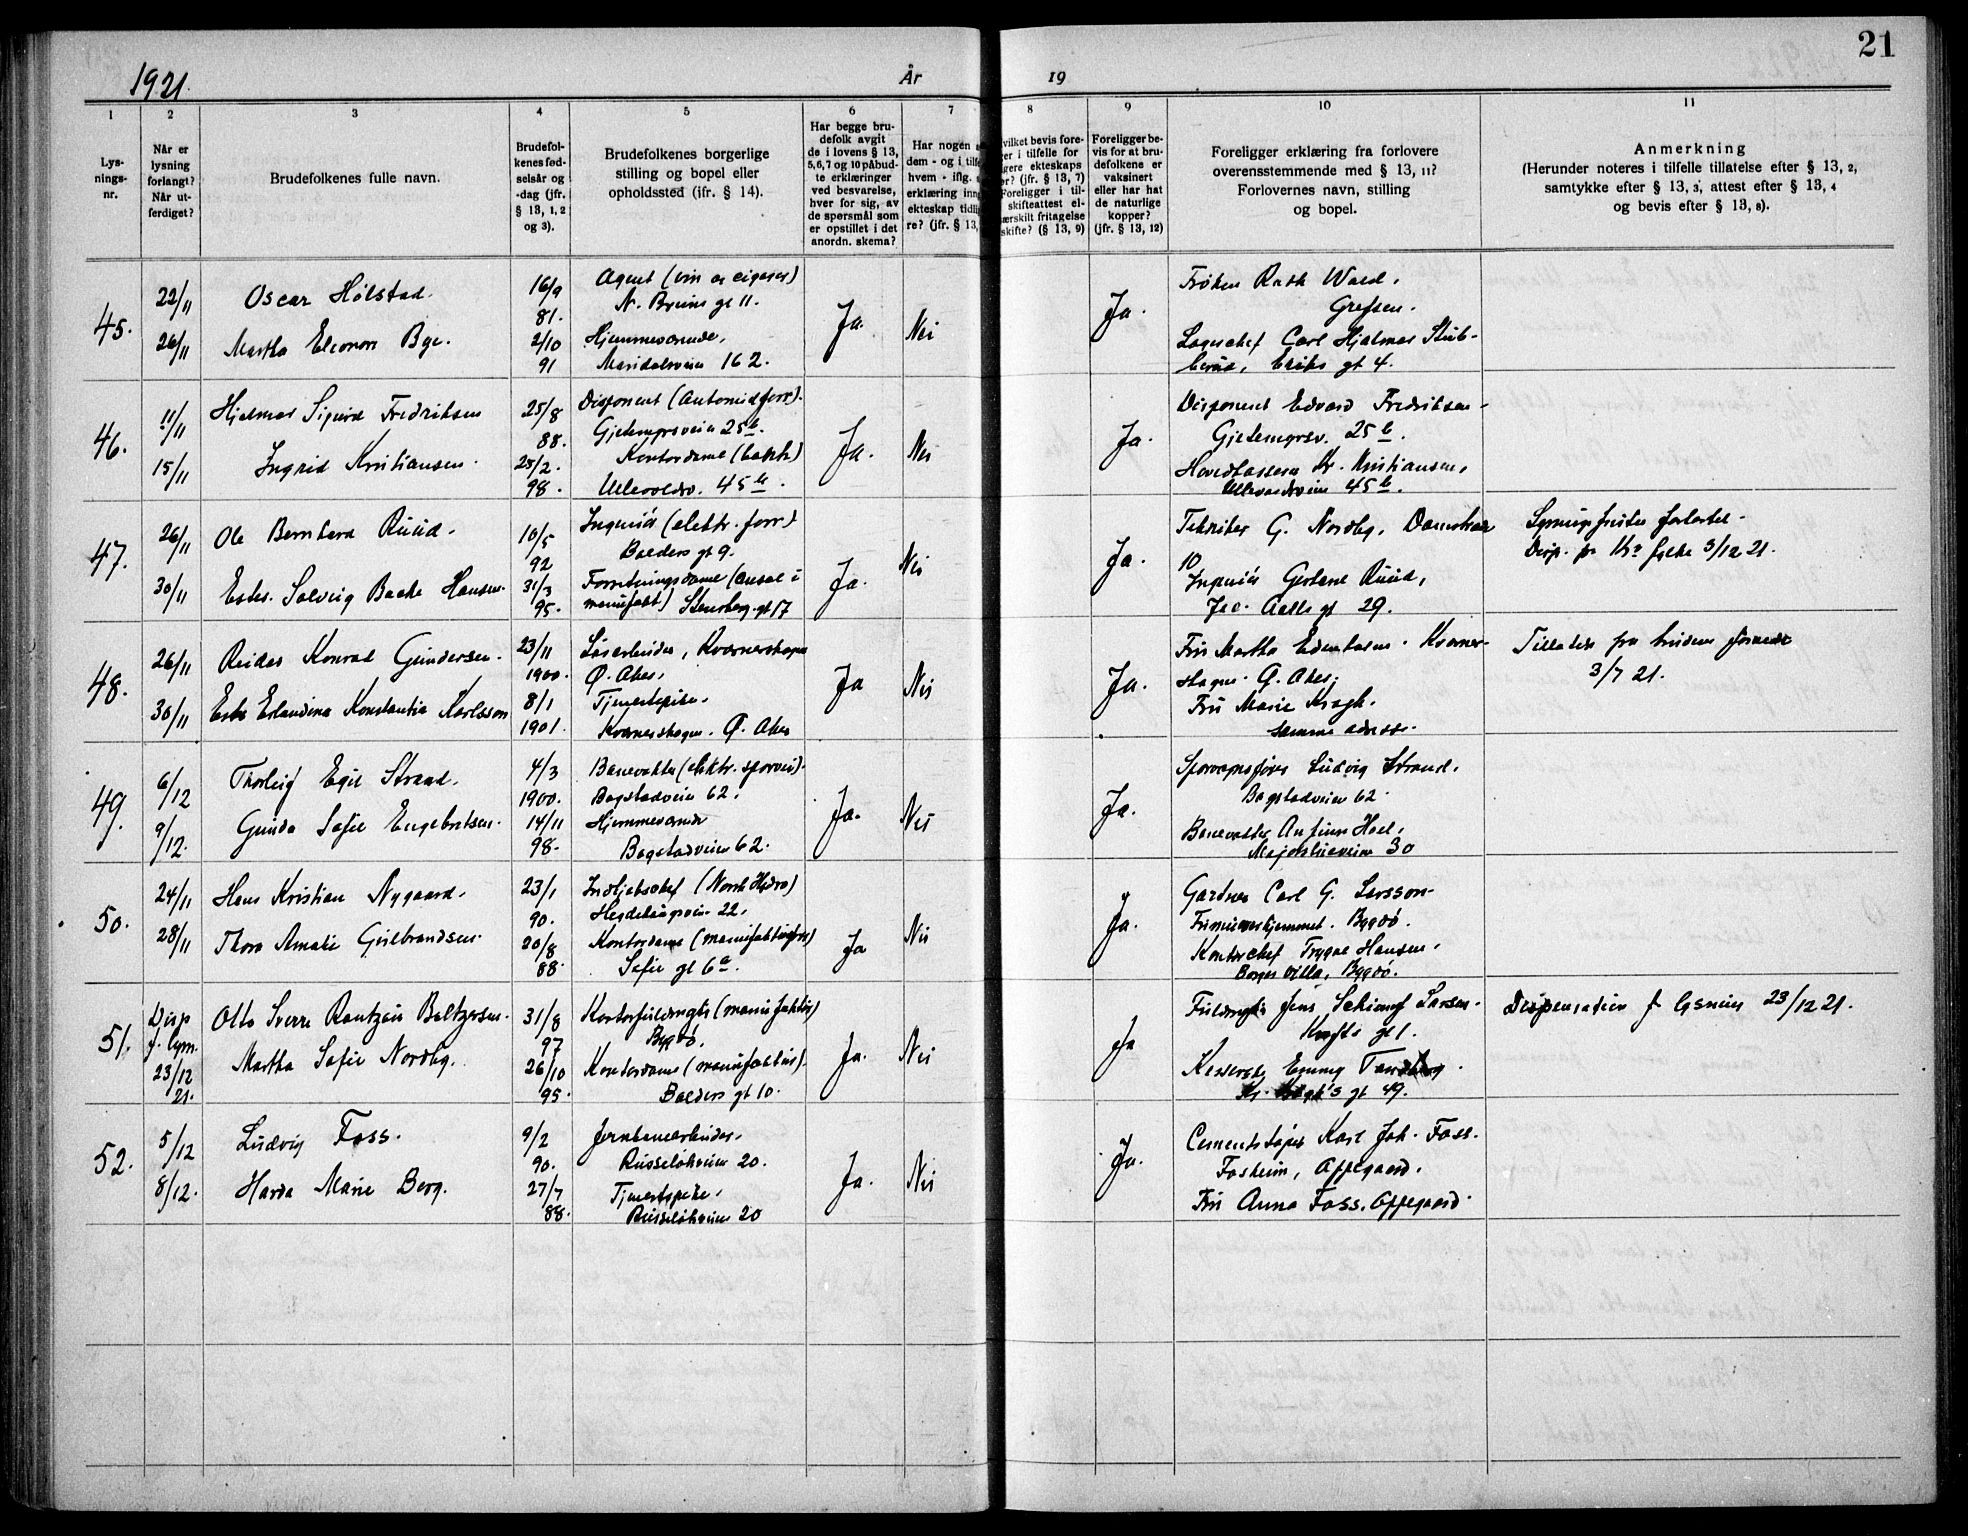 21
1921.
År
19
1
2
3
4
5
6
7
8
9
10
11
Lys-
nings-
nr.
Når er
lysning
forlangt?
Når ut-
ferdiget?
Brudefolkenes fulle navn.
Brudefol-
kenes fød-
selsår og
-dag (jfr.
§ 13, 1, 2
og 3).
Brudefolkenes borgerlige
stilling og bopel eller
opholdssted (ifr. § 14).
Har begge bru-
defolk avgit
de i lovens § 13,
5, 6, 7 og 10 påbud-
te erklæringer
ved besvarelse,
hver for sig, av
de spørsmål som
er opstillet i det
anordn. skema?
Har nogen
dem - og i tilf
hvem - iflg.
erklæring inn
ekteskap tidli
re? (jfr. § 13,
vilket bevis fore-
ger i tilfelle for
gere ekteskaps
r? (jfr. § 13, 7)
Foreligger i til-
skifteattest el-
ærskilt fritagelse
skifte? (§ 13, 9)
Foreligger be-
vis for at bru-
defolkene er
vaksinert
eller har hat
de naturlige
kopper?
(jfr. § 13, 12)
Foreligger erklæring fra forlovere
overensstemmende med § 13, 11?
Forlovernes navn, stilling
og bopel.
Anmerkning
(Herunder noteres i tilfelle tillatelse efter § 13, 2,
samtykke efter § 13, 3, attest efter § 13, 4
og bevis efter § 13, 8).
45.
22/11
26/11
Oscar Hölstad.
Martha Eleonora Bye.
16/9
81.
2/10
91
Agent (vin og cigarer)
N. Bruns gt 11.
Hjemmeværende,
Maridalsveien 162.
Ja.
Nei
Ja.
Frøken Ruth Wold,
Grefsen.
Lagerchef Carl Hjalmar Stub-
berud, Eriks gt 4.
46.
11/11
15/11
Hjalmar Sigurd Fredriksen
Ingrid Kristiansen.
25/8
88.
25/2.
98.
Disponent (Automobilforr).
Gjetemyrsveien 25b.
Kontordame
Ullevoldsv. 45b.
Ja.
Nei
Ja.
Disponent Edvard Fredriksen-
Gjetemyrsv. 25b.
Kr. Kristiansen,
Ullevoldsveien 45b.
47.
26/11
30/11
Ole Bernhard Ruud.
Ester Solveig Bache Hansen.
10/5
92
31/3
95.
Ingeniör (elektr. forr.)
Balders gt 9.
Forretningsdame (ansat i
manufakt.) Stensberg. gt 17
Ja.
Nei
Ja.
Tekniker G. Nordby,
10
Ingeniör Ruud,
Jac. Aalls gt 29.
Lysningsfristen forkortet-
Disp. fra 3/12 21.
48.
26/11
30/11
Reidar Konrad Gundersen.
Ester Erlandina Konstantia Karlsson
23/11
1900.
8/1
1901.
Løsarbeider, Kværnerhagen
Ø. Aker,
Tjenestepike,
Kværnerhagen. Ø. Aker
Ja
Nei
Ja.
Fru Martha Kværner-
hagen. Ø. Aker.
Fru Marie Kragh.
samme adresse.
Tilladelse fra brudens
3/7 21.
49.
6/12
9/12.
Thorleif Egil Strand.
Gunda Sofie Engebretsen.
4/3
1900.
14/11
98.
Banevokter (elektr. sporvei).
Bogstadveien 62.
Hjemmeværende
Bogstadveien 62.
Ja.
Nei
Ja.
Ludvig Strand.
Bogstadveien 62.
Banevokter
Majorstuveien 30
50.
24/11
28/11
Hans Kristian Nygaard.
Thora Amalie Gulbrandsen.
23/1
90.
20/8
88.
(Norsk Hydro)
Hegdehaugsveien 22.
Kontordame (manufakturforr)
Sofie gt 6a.
Ja
Nei
Ja.
Gartner Carl G. Larsson-
Bygdö.
Kontorchef Trygve Hansen,
Villa, Bygdö.
51.
Disp
f. lysn.
23/12
21.
Otto Sverre Rantzau Baltzersen.
Martha Sofie Nordby.
31/8
97
26/10
95.
Kontorfuldmegtig (manufaktur)
Bygdö.
Kontordame (manufaktur).
Balders gt 10.
Ja.
Nei
Ja
Fuldmegtig Jens Larsen.
gt 1.
gt 49.
Dispensation f. lysning 23/12 21.
52.
5/12
8/12.
Ludvig Foss.
Harda Marie Berg.
9/2
90.
27/7
88.
Jernbanearbeider.
Russeløkveien 20.
Tjenestepike,
Russeløkveien 20
Ja.
Nei
Ja.
Cementstøper Karl Joh. Foss.
Fosheim, Oppegaard.
Fru Anna Foss. Oppegaard.